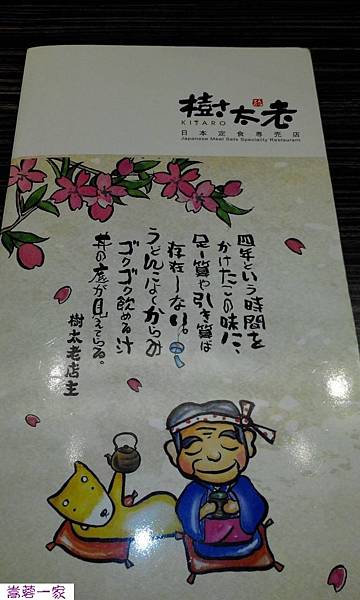 樹太老
KITARO
日本定食專売店
Japanese Meal Sets Specialty Restaurant
四年という時間を
かけたこの味に、
足し算や引き算は
存在しない。
うどんこしくからみ
ゴクゴク飲める汁
丼の底が見えている。
樹太老店主
嵩蓉一家